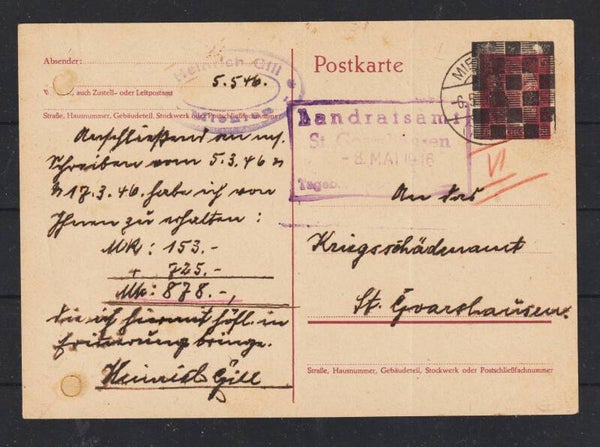 Absender:
Heinrich Gill
5.5.46.
auch Zustell- oder Leitpostamt
Straße, Hausnummer, Gebäudeteil, Stockwerk oder Postschließfachnummer
Anschließend an m.
Schreiben vom 5.3.46 u
17.3.46. habe ich von
Ihnen zu erhalten:
MK: 153.-
+ 725.-
MK: 878.-,
die ich hiermit höfl. in
Erinnerung bringe.
Heinrich Gill
Postkarte
MIE
Landratsamt
St. Goarshausen
-8. MAI 1946
Tageb.
VI
An das
Kriegsschädenamt
St. Goarshausen.
Straße, Hausnummer, Gebäudeteil, Stockwerk oder Postschließfachnummer